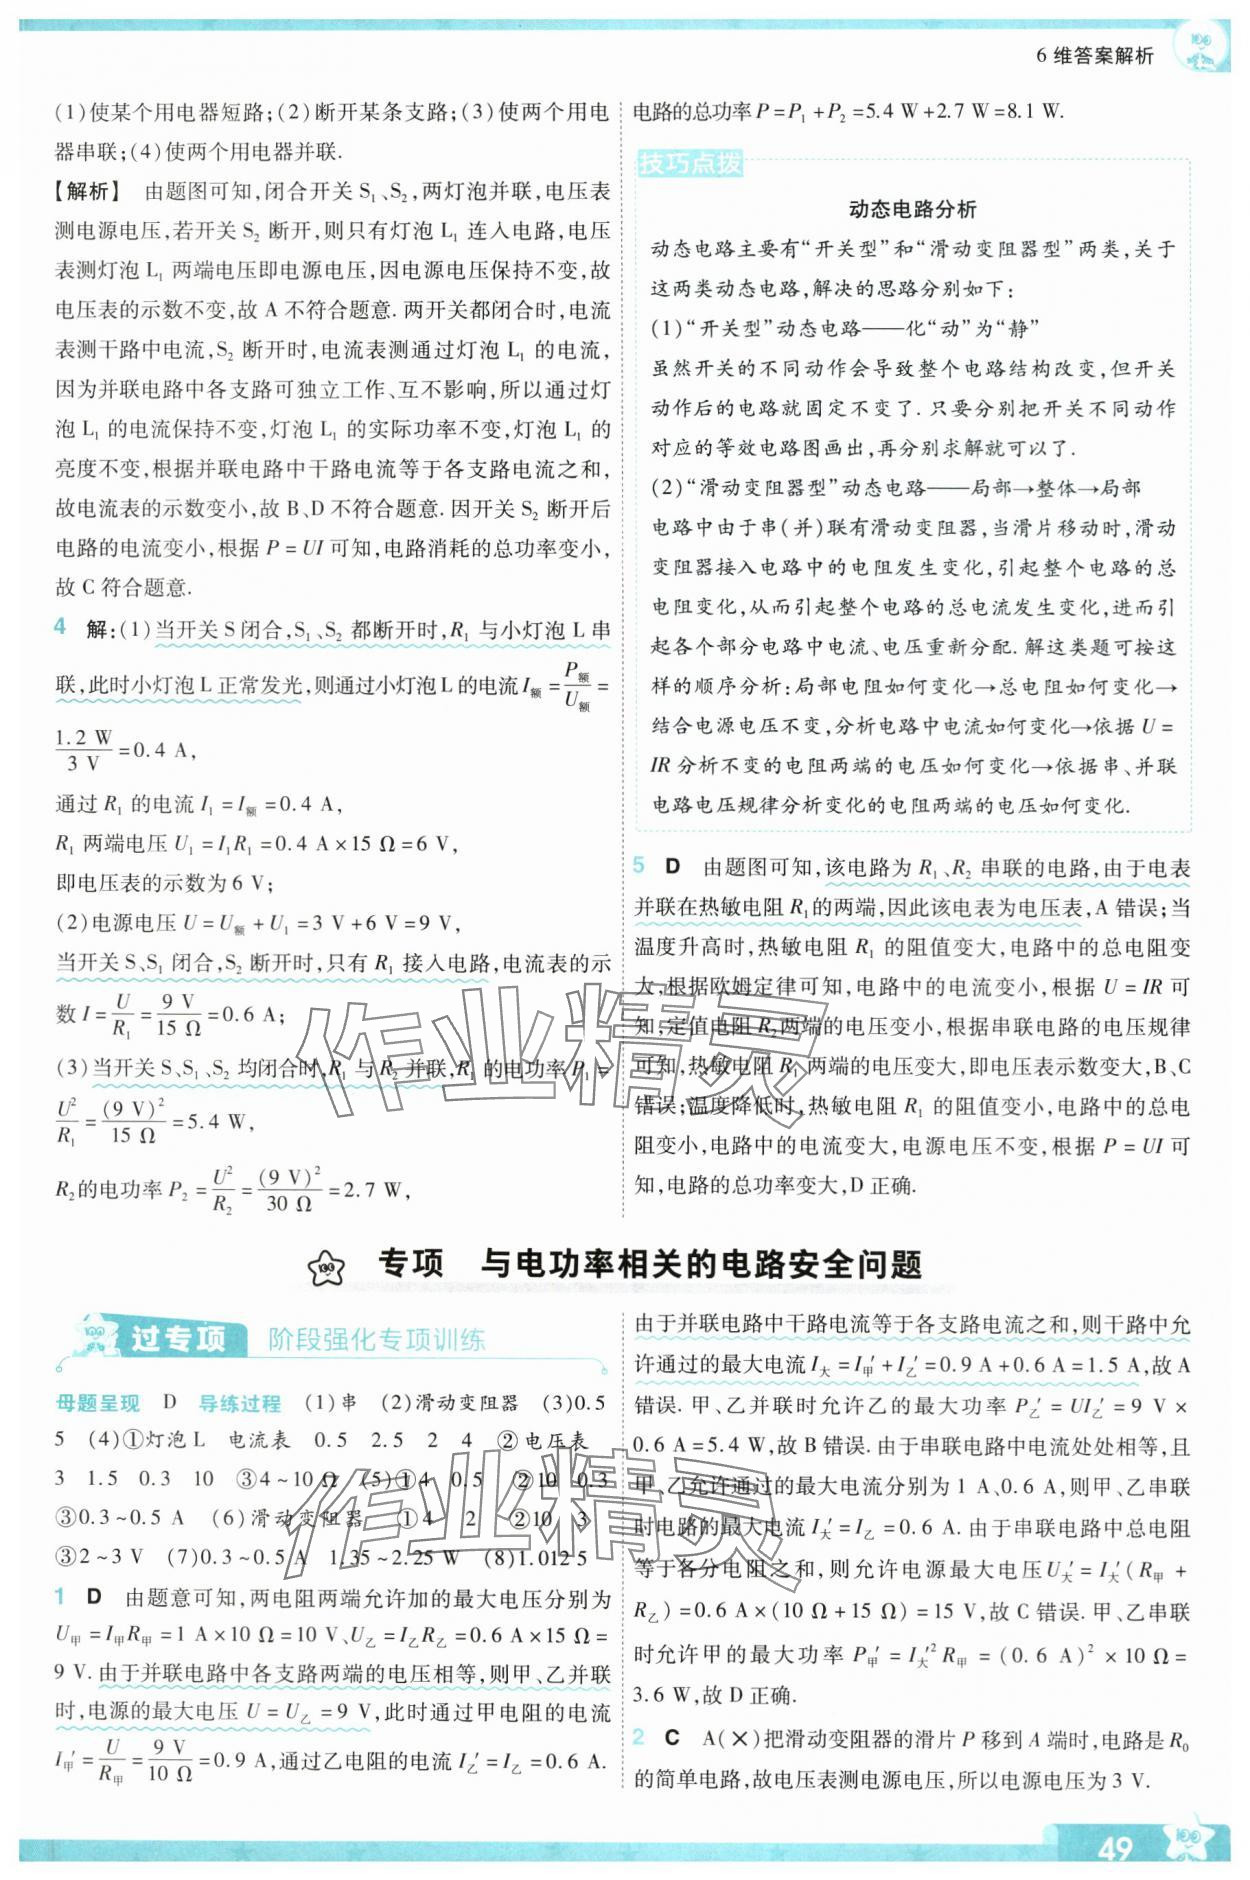 6 维答案解析
(1)使某个用电器短路;(2)断开某条支路;(3)使两个用电
器串联;(4)使两个用电器并联.
【解析】 由题图可知,闭合开关 S₁、S₂,两灯泡并联,电压表
测电源电压,若开关 S₂ 断开,则只有灯泡 L₁ 连入电路,电压
表测灯泡 L₁ 两端电压即电源电压,因电源电压保持不变,故
电压表的示数不变,故 A 不符合题意. 两开关都闭合时,电流
表测干路中电流,S₂ 断开时,电流表测通过灯泡 L₁ 的电流,
因为并联电路中各支路可独立工作、互不影响,所以通过灯
泡 L₁ 的电流保持不变,灯泡 L₁ 的实际功率不变,灯泡 L₁ 的
亮度不变,根据并联电路中干路电流等于各支路电流之和,
故电流表的示数变小,故 B、D 不符合题意. 因开关 S₂ 断开后
电路的电流变小,根据 P = UI 可知,电路消耗的总功率变小,
故 C 符合题意.
4 解:(1)当开关 S 闭合,S₁、S₂ 都断开时,R₁ 与小灯泡 L 串
联,此时小灯泡 L 正常发光,则通过小灯泡 L 的电流 I额 = P额/U额 =
1.2 W/3 V = 0.4 A,
通过 R₁ 的电流 I₁ = I额 = 0.4 A,
R₁ 两端电压 U₁ = I₁R₁ = 0.4 A×15 Ω = 6 V,
即电压表的示数为 6 V;
(2)电源电压 U = U额 + U₁ = 3 V+6 V = 9 V,
当开关 S、S₁ 闭合,S₂ 断开时,只有 R₁ 接入电路,电流表的示
数 I = U/R₁ = 9 V/15 Ω = 0.6 A;
(3)当开关 S、S₁、S₂ 均闭合时,R₁ 与 R₂ 并联,R₁ 的电功率 P₁ =
U²/R₁ = (9 V)²/15 Ω = 5.4 W,
R₂的电功率 P₂ = U²/R₂ = (9 V)²/30 Ω = 2.7 W,
电路的总功率 P = P₁ + P₂ = 5.4 W+2.7 W = 8.1 W.
技巧点拨
动态电路分析
动态电路主要有“开关型”和“滑动变阻器型”两类,关于
这两类动态电路,解决的思路分别如下:
(1)“开关型”动态电路——化“动”为“静”
虽然开关的不同动作会导致整个电路结构改变,但开关
动作后的电路就固定不变了. 只要分别把开关不同动作
对应的等效电路图画出,再分别求解就可以了.
(2)“滑动变阻器型”动态电路——局部→整体→局部
电路中由于串(并)联有滑动变阻器,当滑片移动时,滑动
变阻器接入电路中的电阻发生变化,引起整个电路的总
电阻变化,从而引起整个电路的总电流发生变化,进而引
起各个部分电路中电流、电压重新分配. 解这类题可按这
样的顺序分析:局部电阻如何变化→总电阻如何变化→
结合电源电压不变,分析电路中电流如何变化→依据 U =
IR 分析不变的电阻两端的电压如何变化→依据串、并联
电路电压规律分析变化的电阻两端的电压如何变化.
5 D 由题图可知,该电路为 R₁、R₂ 串联的电路,由于电表
并联在热敏电阻 R₁的两端,因此该电表为电压表,A 错误;当
温度升高时,热敏电阻 R₁ 的阻值变大,电路中的总电阻变
大,根据欧姆定律可知,电路中的电流变小,根据 U = IR 可
知,定值电阻 R₂两端的电压变小,根据串联电路的电压规律
可知,热敏电阻 R₁两端的电压变大,即电压表示数变大,B、C
错误;温度降低时,热敏电阻 R₁ 的阻值变小,电路中的总电
阻变小,电路中的电流变大,电源电压不变,根据 P = UI 可
知,电路的总功率变大,D 正确.
作业精灵
专项 与电功率相关的电路安全问题
过专项 阶段强化专项训练
母题呈现 D 导练过程 (1)串 (2)滑动变阻器 (3)0.5
5 (4)①灯泡 L 电流表 0.5 2.5 2 4 ②电压表
3 1.5 0.3 10 ③4～10 Ω (5)①4 0.5 ②10 0.3
③0.3～0.5 A (6)滑动变阻器 ①4 2 ②10 3
③2～3 V (7)0.3～0.5 A 1.35～2.25 W (8)1.012 5
1 D 由题意可知,两电阻两端允许加的最大电压分别为
U甲 = I甲R甲 = 1 A×10 Ω = 10 V、U乙 = I乙R乙 = 0.6 A×15 Ω =
9 V. 由于并联电路中各支路两端的电压相等,则甲、乙并联
时,电源的最大电压 U = U乙 = 9 V,此时通过甲电阻的电流
I甲′ = U/R甲 = 9 V/10 Ω = 0.9 A,通过乙电阻的电流 I乙′ = I乙 = 0.6 A.
由于并联电路中干路电流等于各支路电流之和,则干路中允
许通过的最大电流 I大 = I甲′ + I乙′ = 0.9 A+0.6 A = 1.5 A,故 A
错误. 甲、乙并联时允许乙的最大功率 P乙′ = UI乙′ = 9 V ×
0.6 A = 5.4 W,故 B 错误. 由于串联电路中电流处处相等,且
甲、乙允许通过的最大电流分别为 1 A、0.6 A,则甲、乙串联
时电路的最大电流 I大′ = I乙 = 0.6 A. 由于串联电路中总电阻
等于各分电阻之和,则允许电源最大电压 U大′ = I大′(R甲 +
R乙) = 0.6 A×(10 Ω+15 Ω) = 15 V,故 C 错误. 甲、乙串联
时允许甲的最大功率 P甲′ = I大′²R甲 = (0.6 A)²×10 Ω =
3.6 W,故 D 正确.
2 C A(×)把滑动变阻器的滑片 P 移到 A 端时,电路是 R₀
的简单电路,故电压表测电源电压,所以电源电压为 3 V.
作业精灵
49